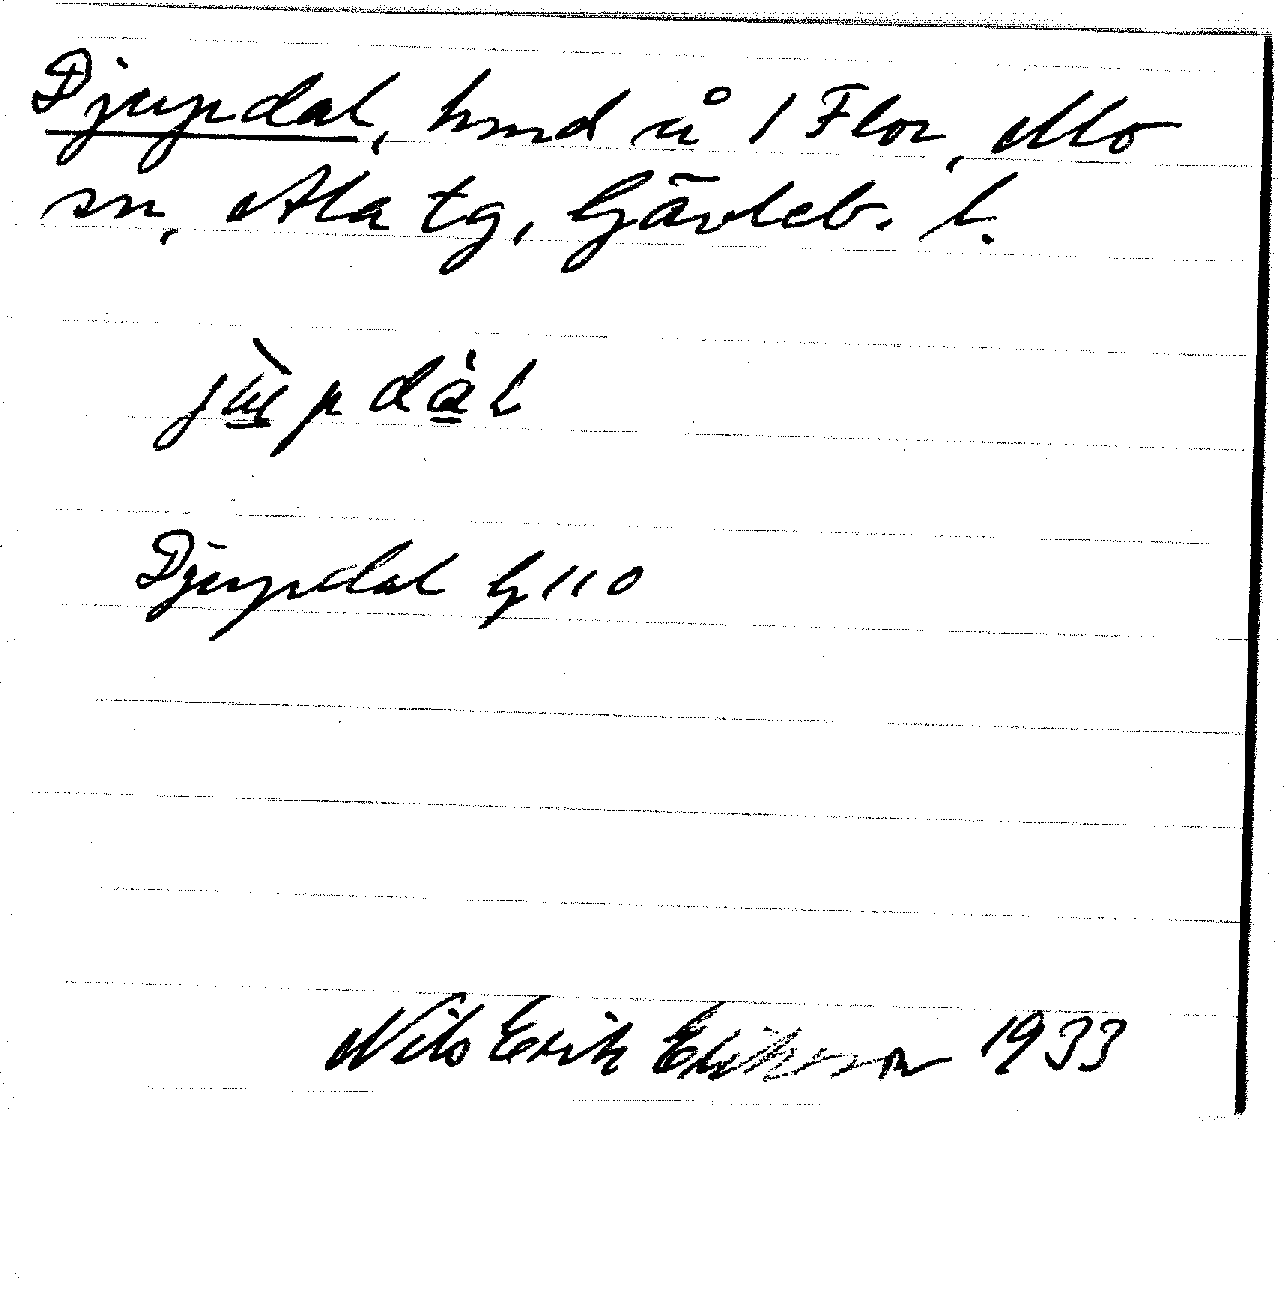 Djupdal, hmd å 1 Flor, Mo
sn, Ala tg, Gävleb. l.
jùpdàl
Djupdal G 110
Nils Erik Eriksson 1933